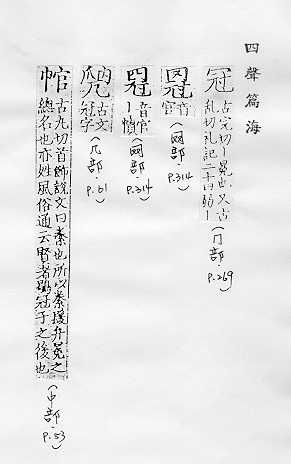 四聲篇海
冠 古完切冕也又古
亂切礼記二十曰弱丨
(冖部 p.269)
音
官
(網部 p.314)
音官
丨幘
(網部 p.314)
古文
冠字
(几部 p.61)
古丸切首飾說文曰絭也所以絭援弁冕之
總名也亦姓風俗通云賢者鶡冠子之後也
(巾部 p.53)